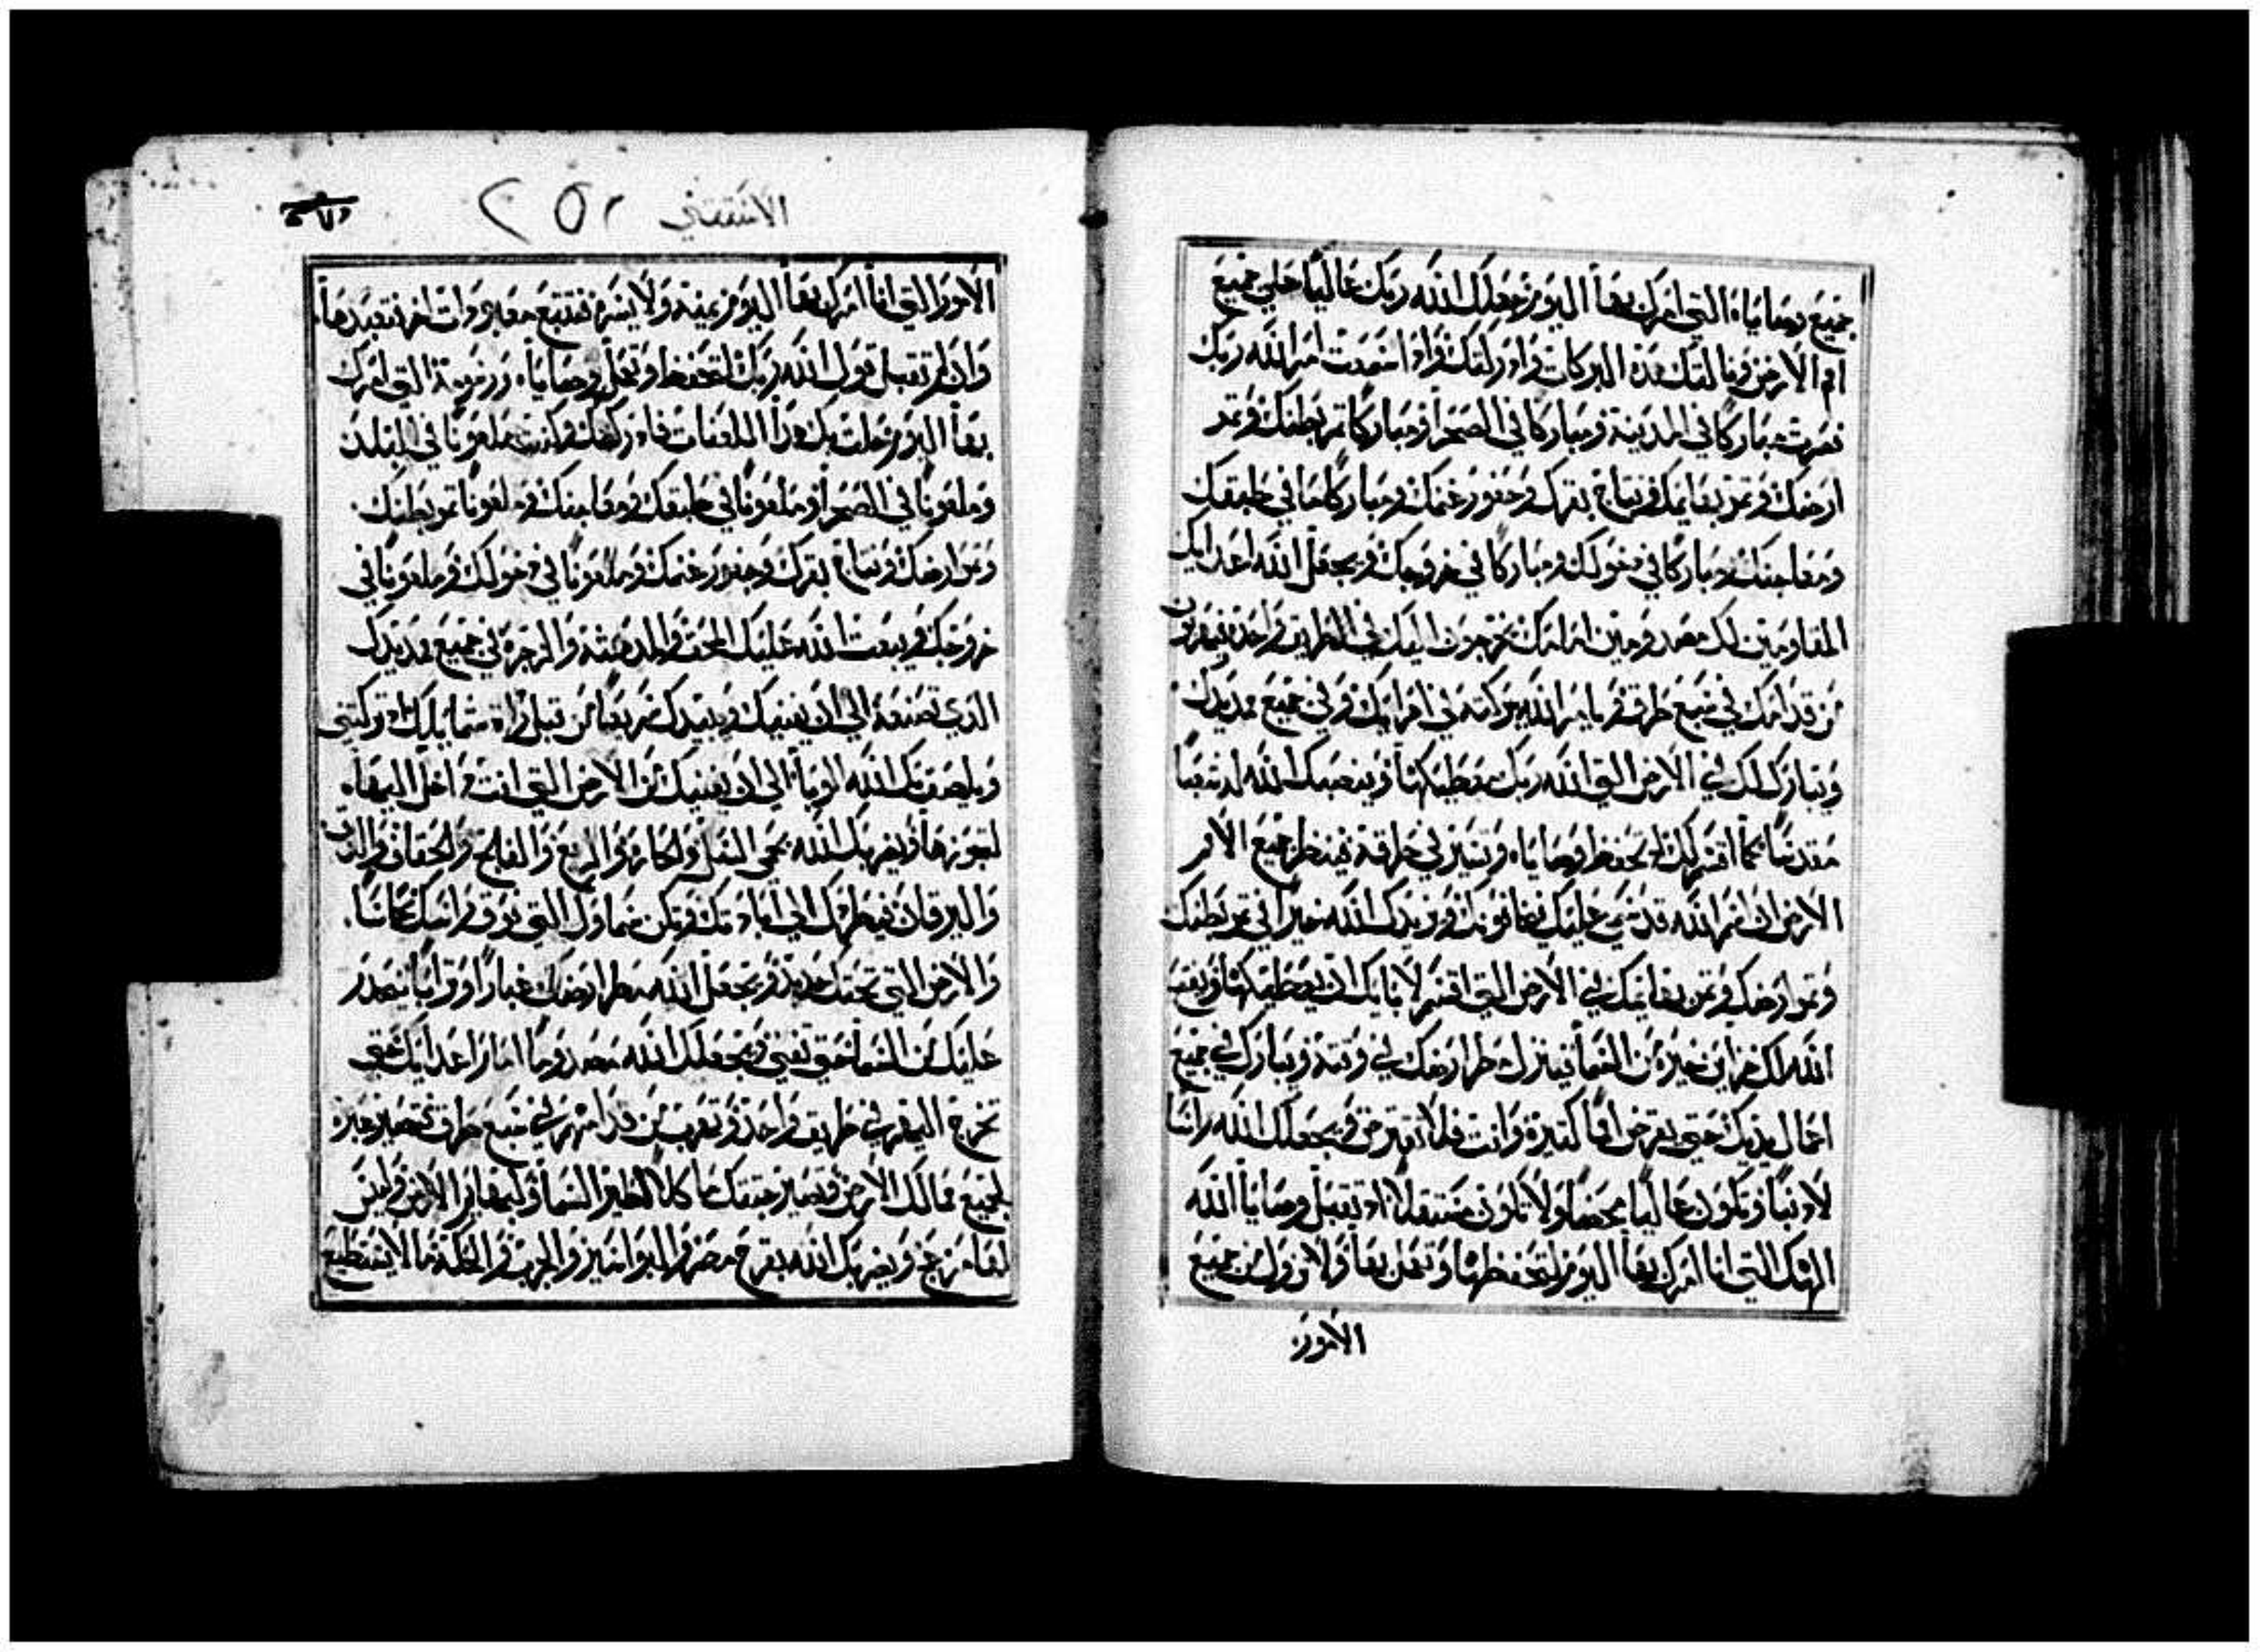 جميع وصاياه التي امرك بها اليوم جعلك الله ربك عاليا علي جميع
امم الارض ونالتك هذه البركات وادركتك واذا سمعت امر الله ربك
فصرت مباركا في المدينة ومباركا في الصحرا ومباركا ثمر بطنك وثمر
ارضك وثمر بهايمك ونتاج بقرك وجفور غنمك ومباركا في طبقك
ومعاجنك ومباركا في دخولك ومباركا في خروجك ويجعل الله اعدايك
المقاومين لك بين امامك يخرجون اليك في الطريق واحدة فيهربون
من قدامك في سبع طرق ويامر الله ببركته في اهرايك وفي جميع مد يدك
ويبارك لك في الارض التي الله ربك معطيكها وينصبك الله له شعبا
مقدسا كما اقسم لك تحفظ وصاياه وتسير في طرقه فينظر جميع الامم
الارض ان اسم الله قد سمي عليك فهابونك ويزيدك الله خيرا في ثمر بطنك
وثمر ارضك وثمر بهايمك في الارض التي اقسم لابايك ان يعطيكها ويفتح
الله لك خزاين خيره من السما فينزل مطر ارضك في وقته ويبارك في جميع
اعمال يديك حتي يقرض امما كثيرة وانت فلا تقترض ويجعلك الله راسا
لا ذنبا وتكون عاليا محضا ولا تكون مستفلا اذ تقبل وصايا الله
الهك التي انا امرك بها اليوم لتحفظها وتعمل بها ولا تزول من جميع
الامور
الاستثني ٢٥٢
الامور التي انا امرك بها اليوم يمنة ولا يسرة فتتبع معبودات اخر فتعبدها
وان لم تقبل قول الله ربك لتحفظ وتعمل وصاياه ورسومه التي امرك
بها اليوم حلت بك هذا اللعنات وادركتك وكنت ملعونا في البلد
وملعونا في الصحرا وملعونا في طبقك ومعاجنك وملعونا ثمر بطنك
وثمر ارضك ونتاج بقرك وجفور غنمك وملعونا في دخولك وملعونا في
خروجك ويبعث الله عليك المحق والدهشة والزجرة في جميع مد يدك
الذي تصنعه الي ان يفنيك ويبيدك سريعا من قبل رداة شمايلك اذ تركتني
ويلصق بك الله الوبا الي ان يفنيك من الارض التي انت داخل اليها
لتحوزها ويضربك الله بحمي السل والحارة والربع والفلج والخفاف والذبول
واليرقان فيطردك الي ابادتك وتكن سماوك التي فوق راسك نحاسا
والارض التي تحتك حديد ويجعل الله مطر ارضك غبارا وترابا ينحدر
عليك من السما حتي تفني ويجعلك الله مصدوما امام اعدايك حتي
تخرج اليهم في طريق واحدة وتهرب من قدامهم في سبع طرق فتصير عبرة
لجميع ممالك الارض وتصير جثتك ماكلا لطير السما ولبهايم الارض وليس
لها مزعج ويضربك الله بقرح مصر والبواسير والجرب والحكة ما لا تستطيع